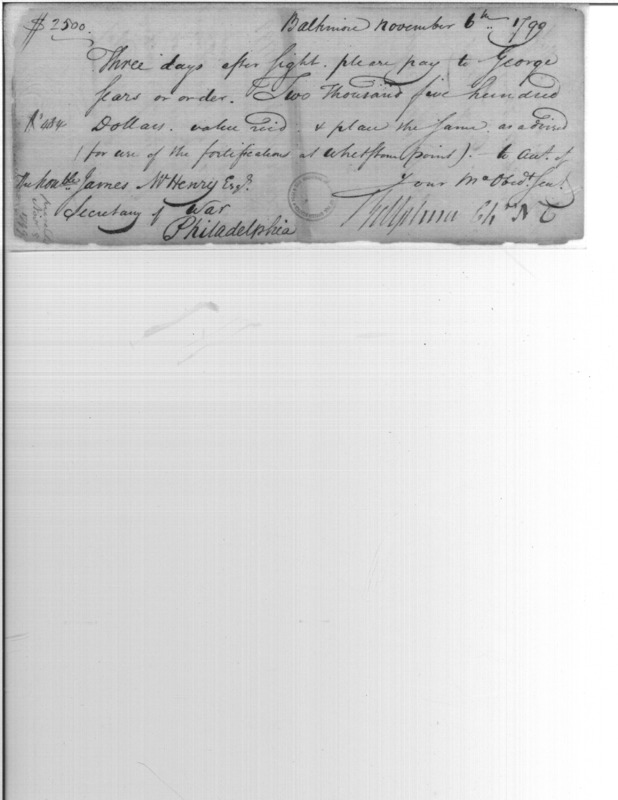 $2500. Baltimore November 6th 1799
Three days after sight please pay to George
Sears or order. Two Thousand five hundred
Dollars. value recd & place the same, as advised
(for use of the fortification at Whetstone point). to acct. of
The honble. James McHenry Esqr. Your Mo Obdt. Servt
Secretary of War
Philadelphia